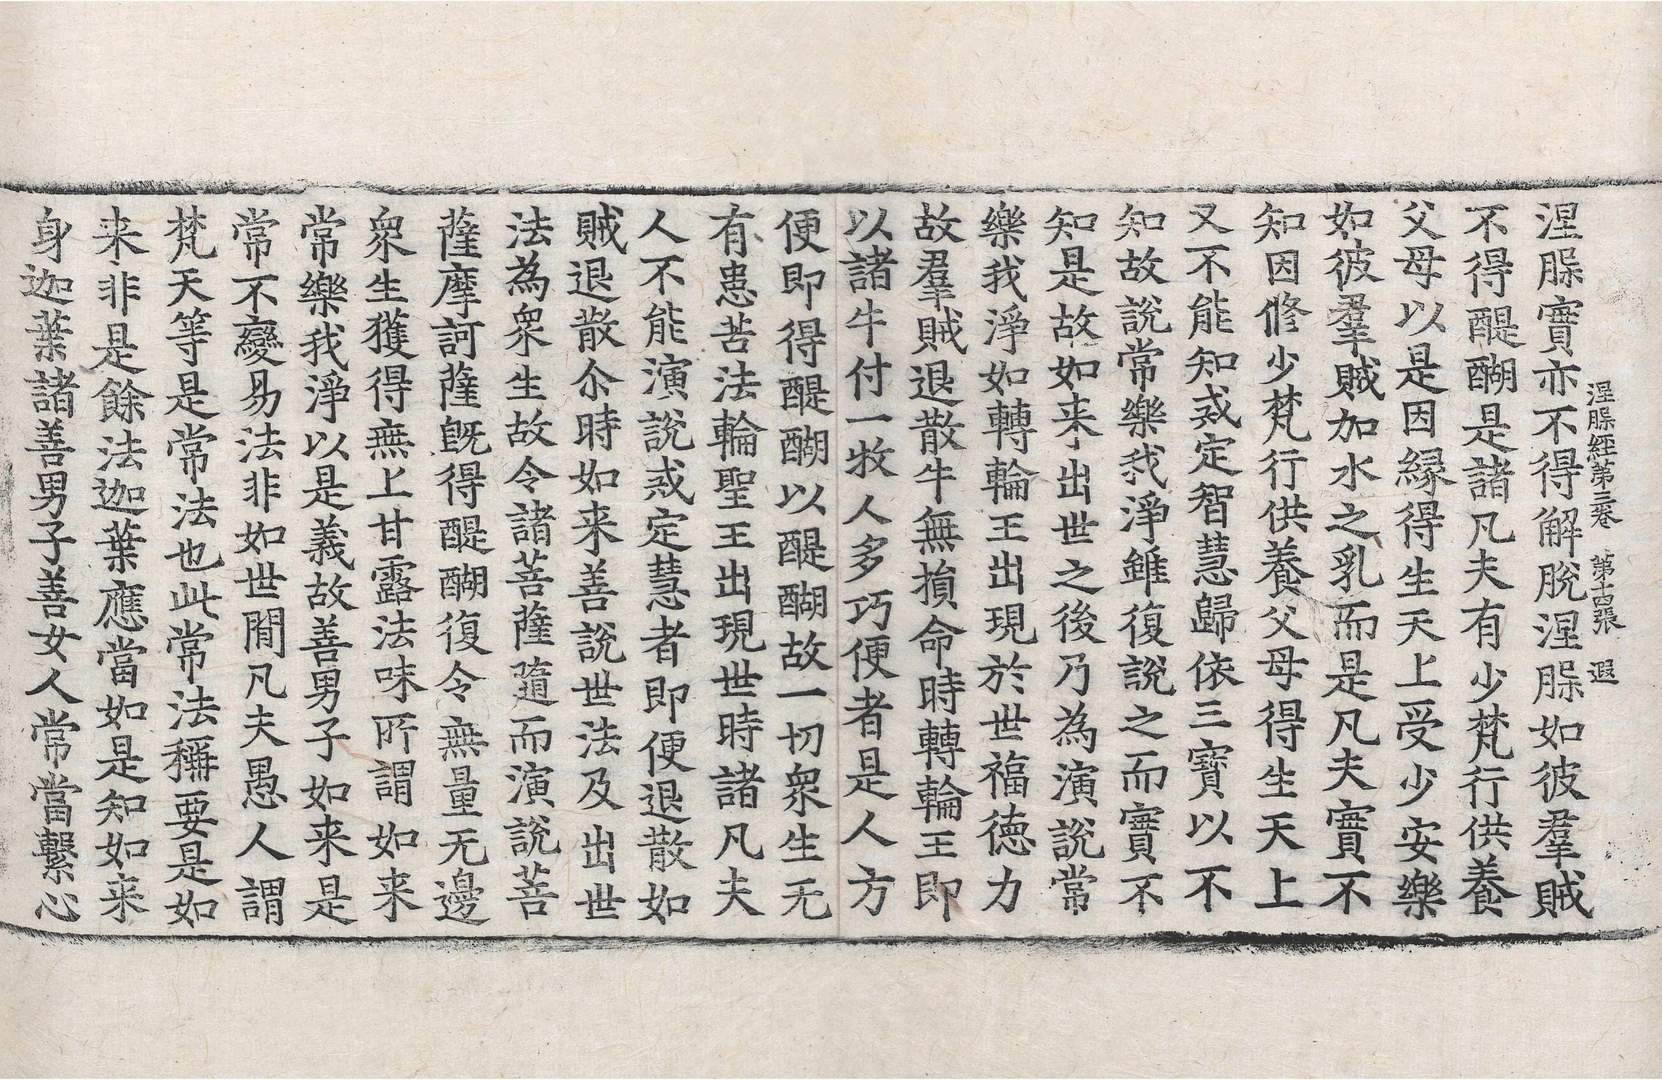 涅槃經第三卷　第十四張　遐
涅槃實亦不得解脫涅槃如彼羣賊
不得醍醐是諸凡夫有少梵行供養
父母以是因緣得生天上受少安樂
如彼羣賊加水之乳而是凡夫實不
知因修少梵行供養父母得生天上
又不能知戒定智慧歸依三寶以不
知故說常樂我淨雖復說之而實不
知是故如来出世之後乃為演說常
樂我淨如轉輪王出現於世福德力
故羣賊退散牛無損命時轉輪王即
以諸牛付一牧人多巧便者是人方
便即得醍醐以醍醐故一切衆生无
有患苦法輪聖王出現世時諸凡夫
人不能演說戒定慧者即便退散如
賊退散尒時如来善說世法及出世
法為衆生故令諸菩薩隨而演說菩
薩摩訶薩旣得醍醐復令無量无邊
衆生獲得無上甘露法味所謂如来
常樂我淨以是義故善男子如来是
常不變易法非如世間凡夫愚人謂
梵天等是常法也此常法稱要是如
来非是餘法迦葉應當如是知如来
身迦葉諸善男子善女人常當繫心